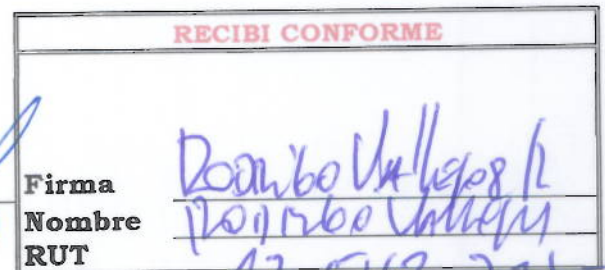 RECIBI CONFORME
Firma Rodrigo Vallejos R
Nombre Rodrigo Vallejos
RUT